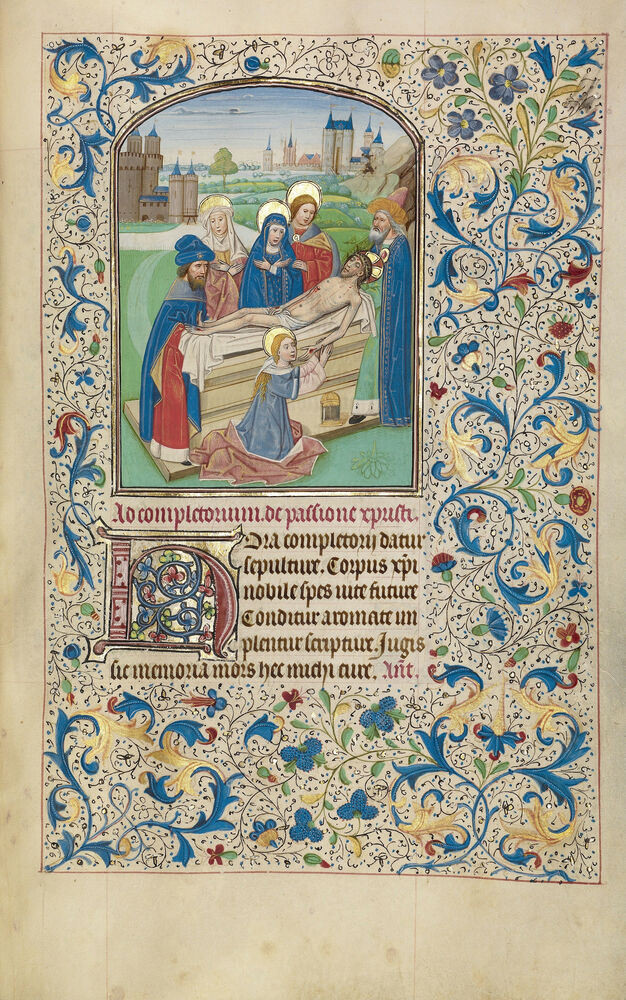 Ad completorium. de passione xpristi.
Hora completorij datur
sepulture. Corpus xpi
nobile spes vite future
Conditur aromate im
plentur scripture. Jugis
sit memoria mors hec michi cure. Ant.